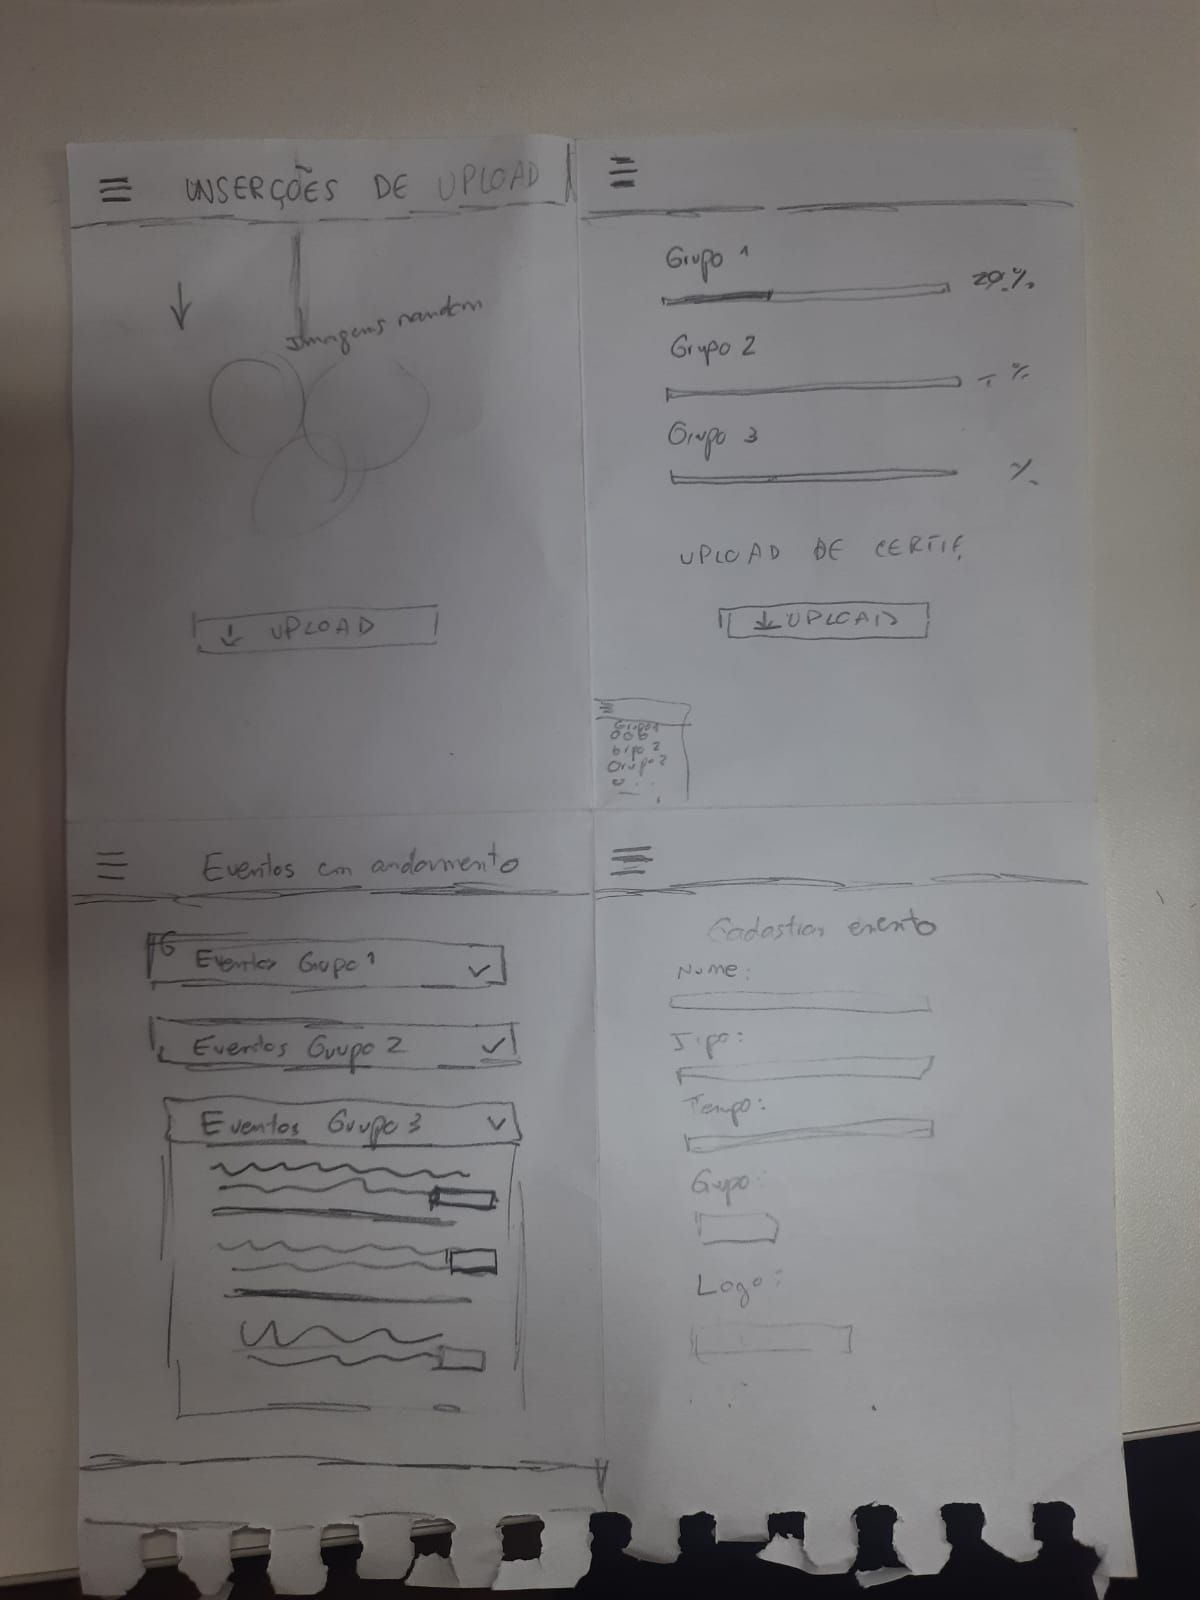 INSERÇÕES DE UPLOAD
Imagens random
UPLOAD
Grupo 1
20%
Grupo 2
- %
Grupo 3
%
UPLOAD DE CERTIF.
UPLOAD
Grupo 1
Grupo 2
Eventos em andamento
Eventos Grupo 1
Eventos Grupo 2
Eventos Grupo 3
Cadastrar evento
Nome:
Tipo:
Tempo:
Grupo:
Logo: